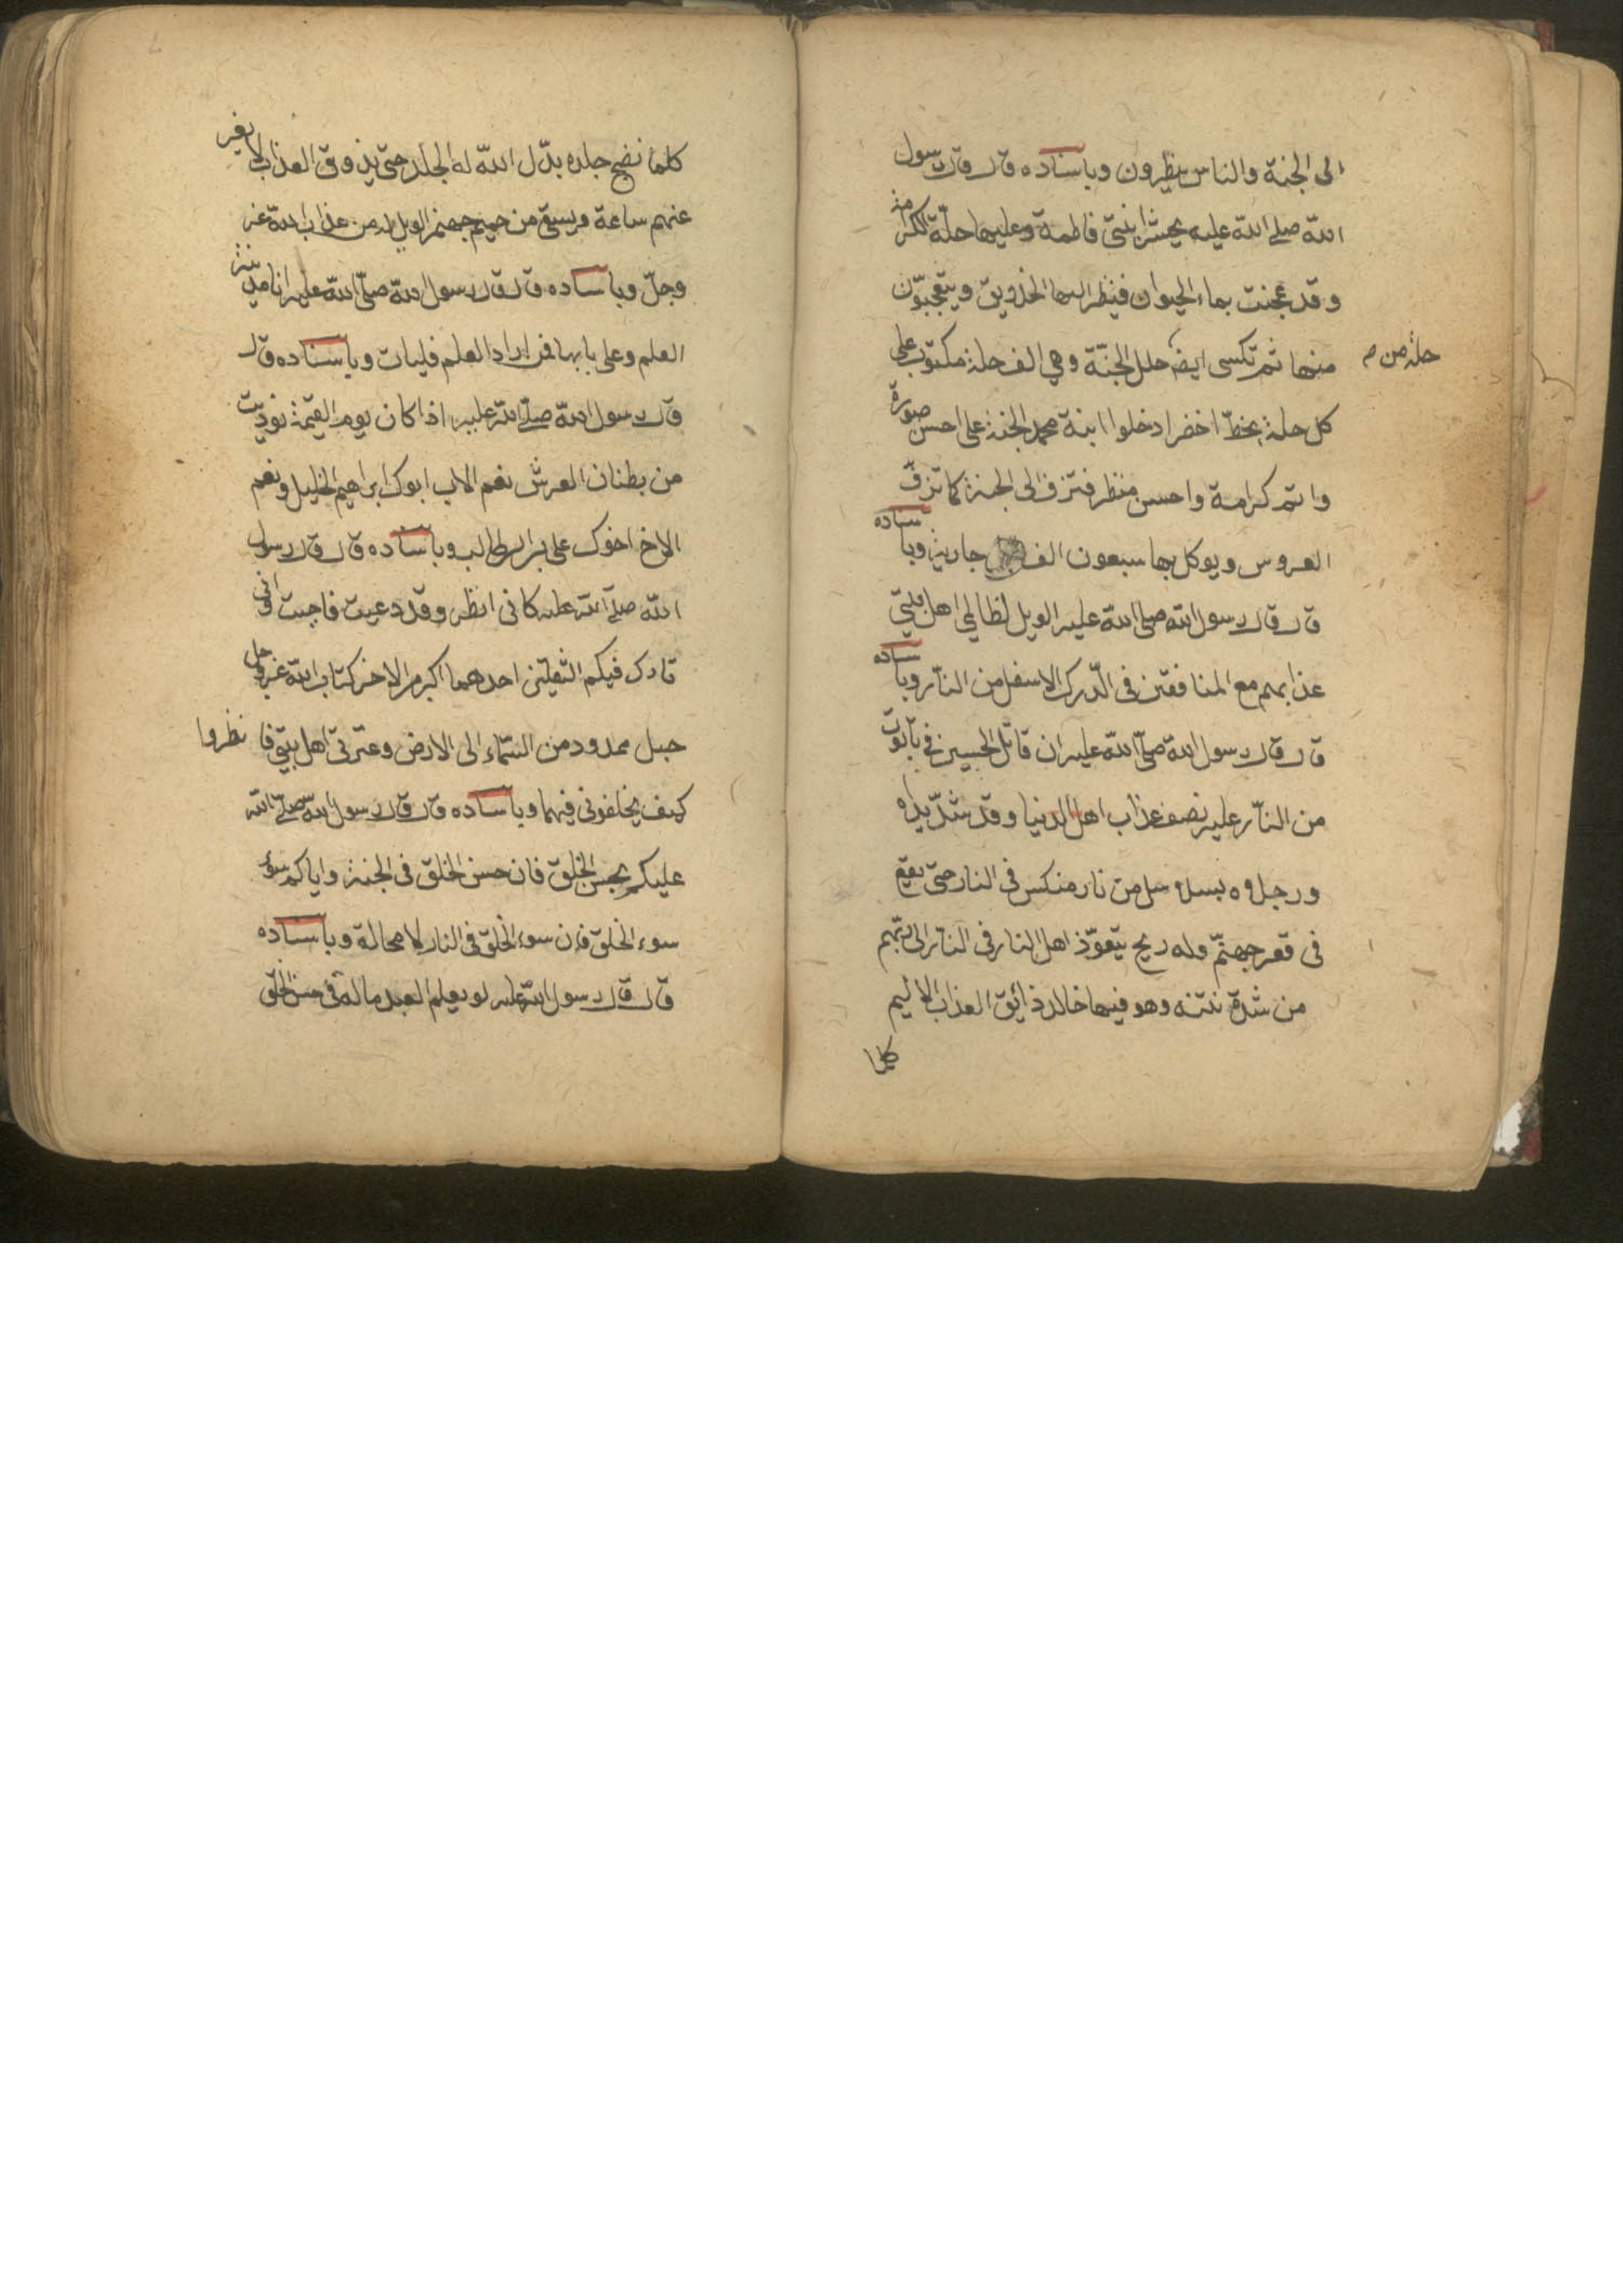 الى الجنة والناس ينظرون وباسناده قال قال رسول
الله صلى الله عليه يحشر ابنتى فاطمة وعليها حلّة الكرامة
وقد عجنت بماء الحيوان فينظر اليها الخلايق ويتعجبون
منها ثم تكسى ايضا حلل الجنّة وهي الف حلة مكتوب على
حلة من
كل حلة بخطّ اخضر ادخلوا ابنة محمد الجنة على احسن صورة
واتم كرامة واحسن منظر فتزف الى الجنة كما تزفّ
العروس ويوكل بها سبعون الف جارية وباسناده
قال قال رسول الله صلى الله عليه الويل لظالمي اهل بيتي
عذابهم مع المنافقين فى الدّرك الاسفل من النّار وباسناده
قال قال رسول الله صلّى الله عليه ان قاتل الحسين في تابوت
من النّار عليه نصف عذاب اهل الدنيا وقد شدّ يداه
ورجلاه بسلاسل من نار منكس فى النار حتى يقع
فى قعر جهنّم وله ريح يتعوّذ اهل النار فى النّار الى ربّهم
من شدة نتنه وهو فيها خالد ذائق العذاب الاليم
كلما
كلما نضج جلده بدّل الله له الجلد حتى يذوق العذاب لا يفتر
عنهم ساعة ويسقى من حميم جهنم الويل له من عذاب الله عز
وجلّ وباسناده قال قال رسول الله صلّى الله عليه انا مدينة
العلم وعلى بابها فمن اراد العلم فليات وباسناده قال
قال رسول الله صلى الله عليه اذا كان يوم القيمة نوديت
من بطنان العرش نعم الاب ابوك ابراهيم الخليل ونعم
الاخ اخوك على بن ابى طالب وباسناده قال قال رسول
الله صلى الله عليه كانى انظر وقد دعيت فاجبت وانى
تارك فيكم الثقلين احدهما اكبر من الاخر كتاب الله عز وجل
حبل ممدود من السّماء الى الارض وعترتى اهل بيتى فانظروا
كيف يخلفونى فيهما وباسناده قال قال رسول الله صلى الله
عليكم بحسن الخلق فان حسن الخلق فى الجنة واياكم سوء
سوء الخلق فإن سوء الخلق فى النار لا محالة وباسناده
قال قال رسول الله عليه لو يعلم العبد ما له فى حسن الخلق